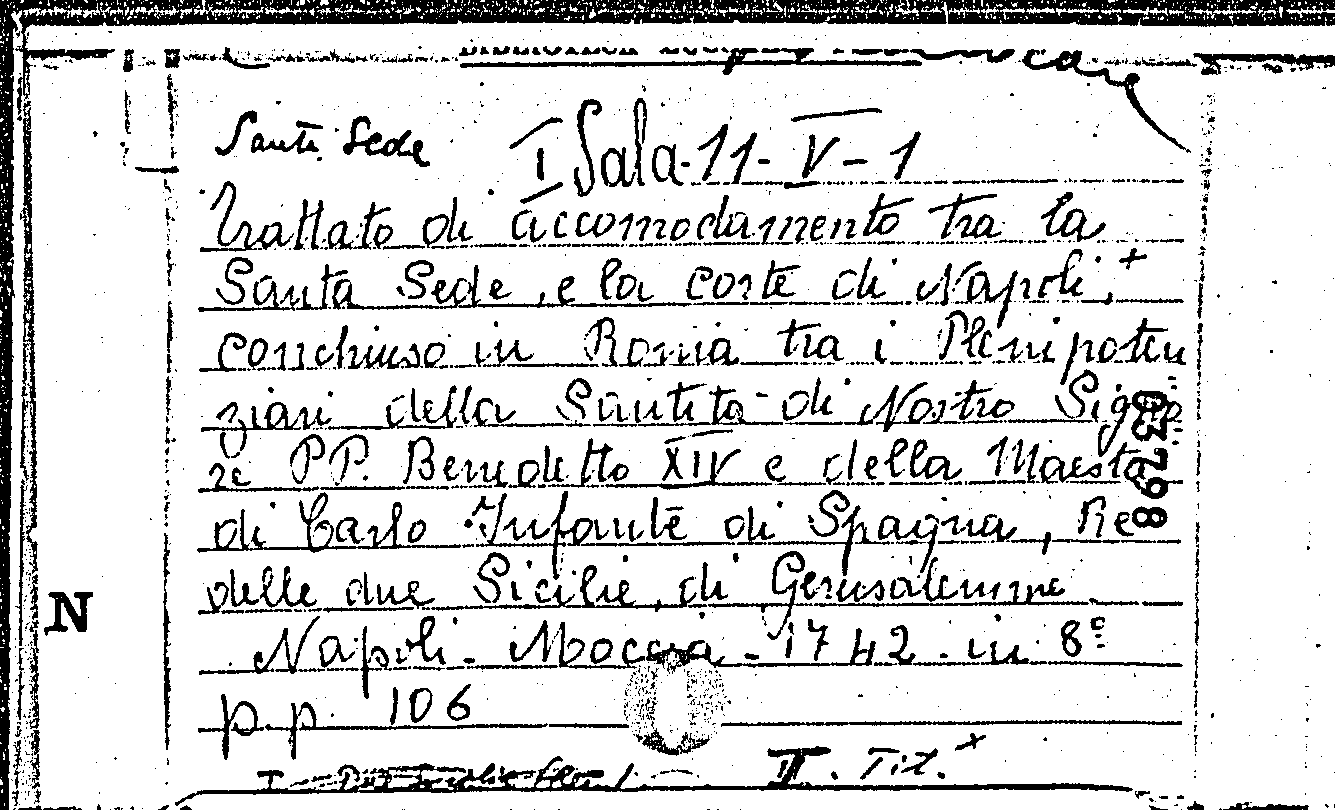 BIBLIOTECA
Santa Sede I Sala-11-V-1
Trattato di accomodamento tra la
Santa Sede, e la corte di Napoli, +
conchiuso in Roma tra i Plenipoten
ziari della Santità di Nostro Signo
re PP. Benedetto XIV e della Maestà
di Carlo Infante di Spagna, Re
delle due Sicilie, di Gerusalemme.
Napoli - Moccia - 1742 - in 8º
p.p. 106
II. Tit. +
N